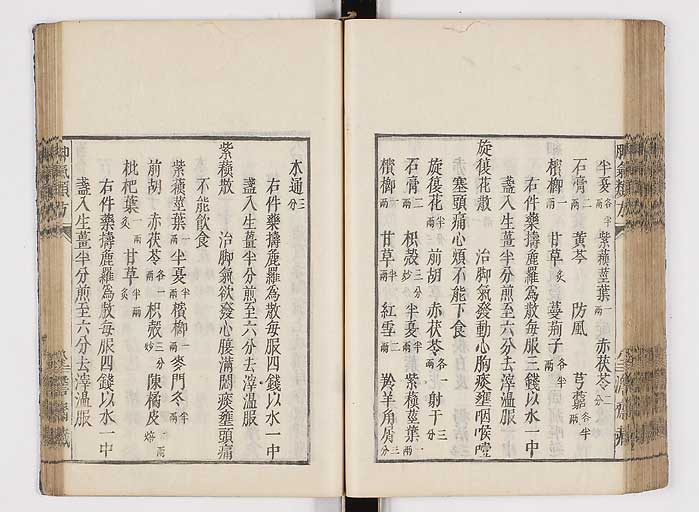 半夏各半兩 紫蘓莖葉一兩 赤茯苓二分
石膏二兩 黃芩 防風 芎藭各半兩
檳榔一兩 甘草炙 蔓荊子各半兩
右件藥擣麄羅為散每服三錢以水一中
盞入生薑半分煎至六分去滓溫服
旋覆花散 治脚氣發動心胸痰壅咽喉噎
塞頭痛心煩不能下食
旋覆花半兩 前胡 赤茯苓各一兩 射干三分
石膏二兩 枳殼三分炒 半夏半兩 紫蘓莖葉一兩
檳榔一兩 甘草半兩 紅雪二兩 羚羊角屑三分
木通三分
右件藥擣麄羅為散每服四錢以水一中
盞入生薑半分煎至六分去滓溫服
紫蘓散 治脚氣欲發心腹滿悶痰壅頭痛
不能飲食
紫蘓莖葉一兩 半夏半兩 檳榔一兩 麥門冬半兩
前胡一兩 赤茯苓各一兩 枳殼三分炒 陳橘皮一兩焙
枇杷葉一兩炙 甘草半兩炙
右件藥擣麄羅為散每服四錢以水一中
盞入生薑半分煎至六分去滓溫服
脚氣類方
脚氣類方